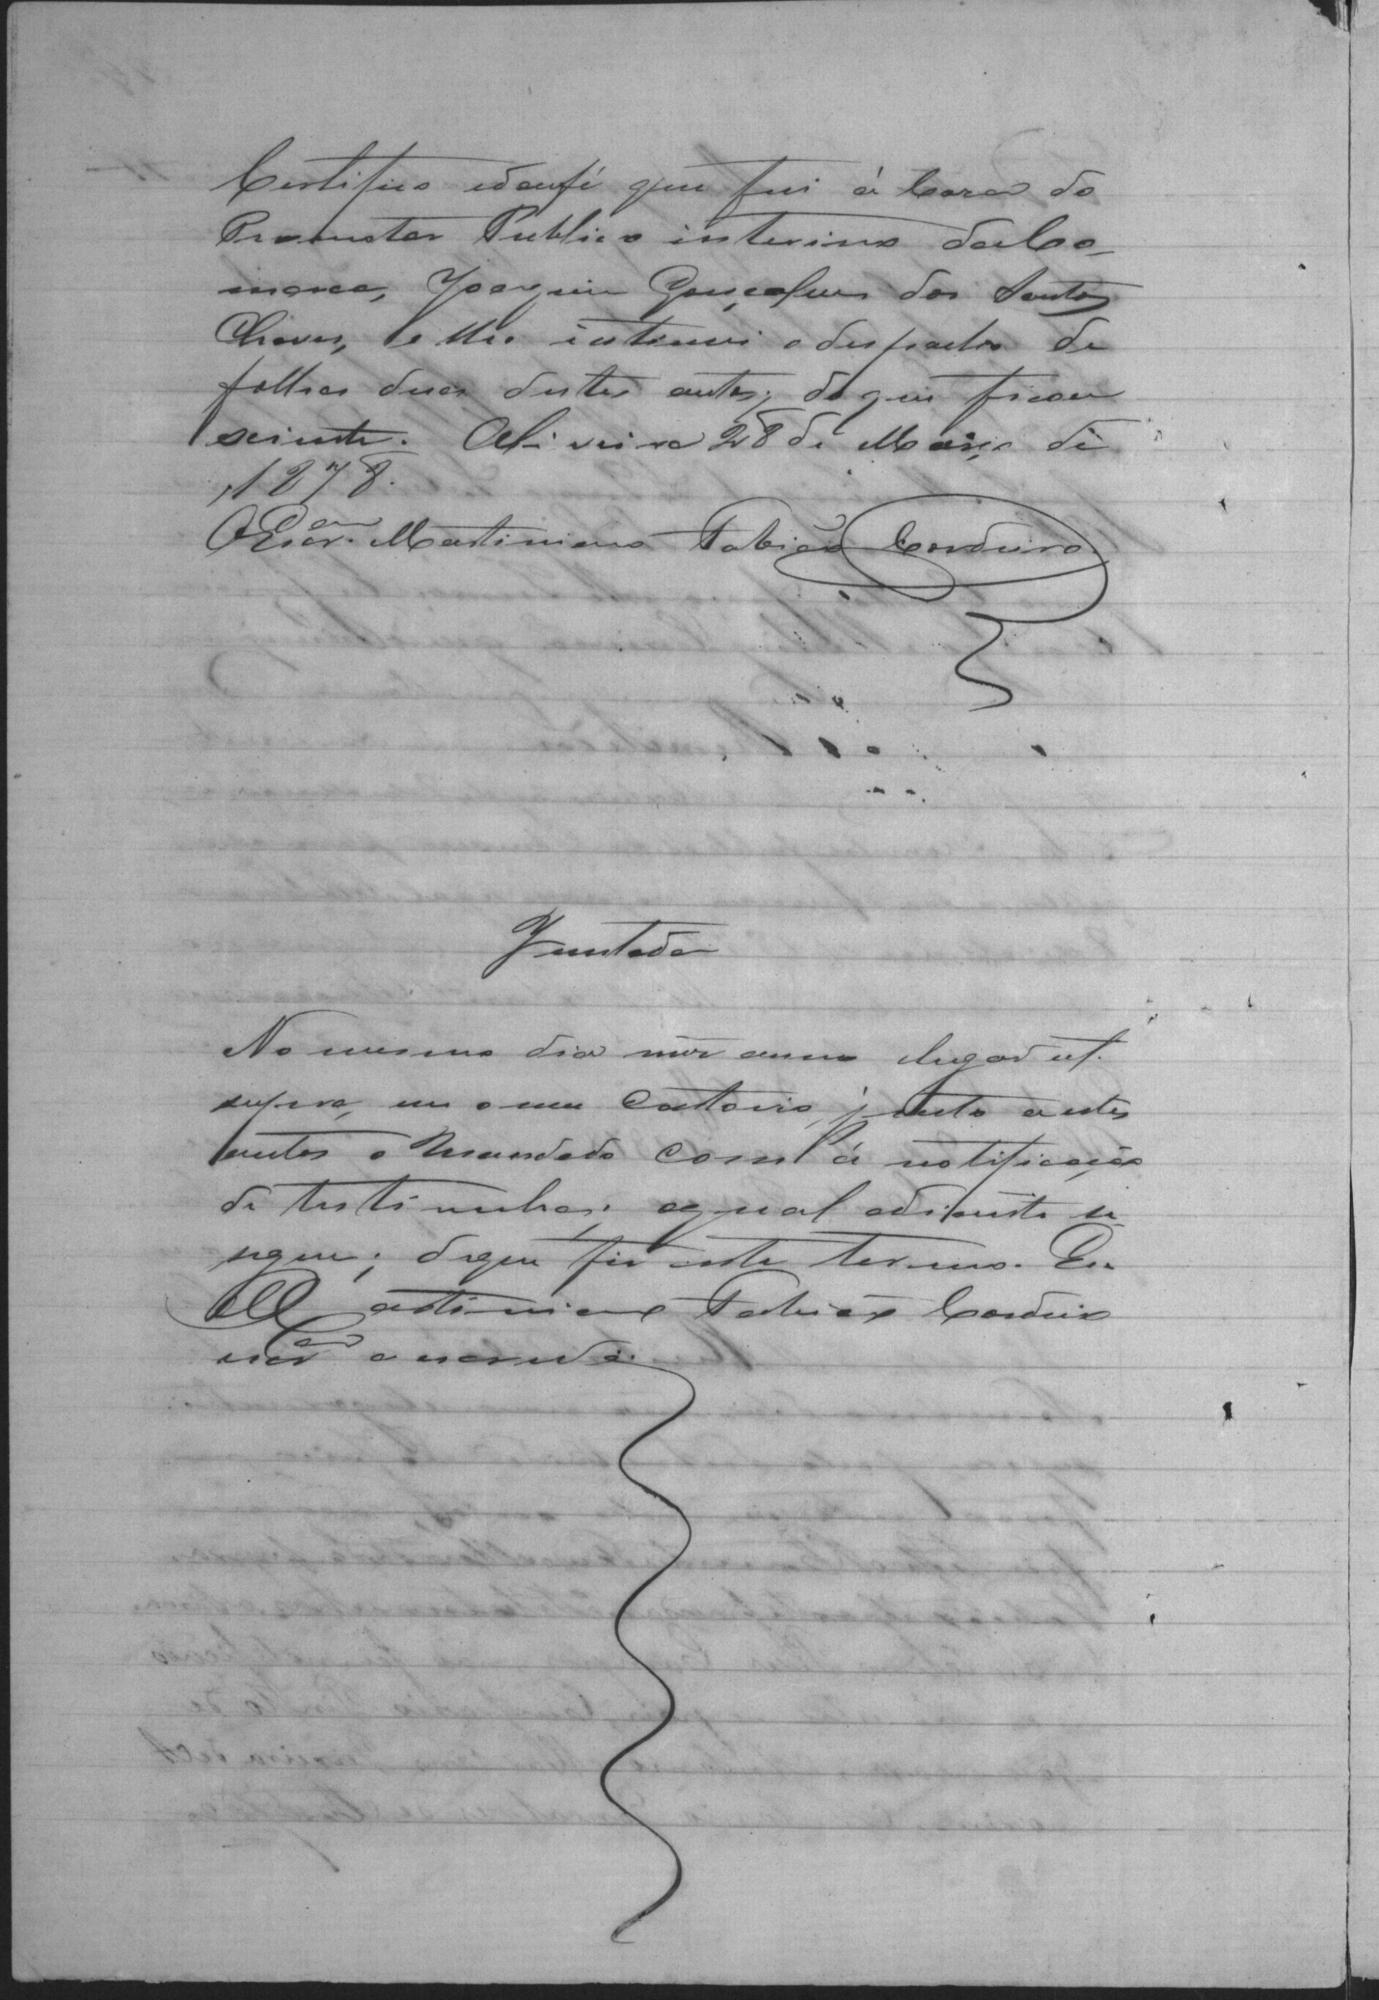 Certifico e dou fé que fui á Caza do
Promotor Publico interino da Co-
marca, Joaquim Gonçalves dos Santos
Chaves, e lhe intimei o despacho de
folhas duas destes autos; do que ficou
sciente. Oliveira 28 de Março de
1878.
O Escr.am Martiniano Fabião Cordeiro
Juntada
No mesmo dia mez anno e lugar ut
supra, em o meu Cartorio, junto a estes
autos o Mandado com a notificação
de testimunhas; o qual adiante se
segue; do que fiz este termo. Eu
Martiniano Fabião Cordeiro
escr.am o escrevi.